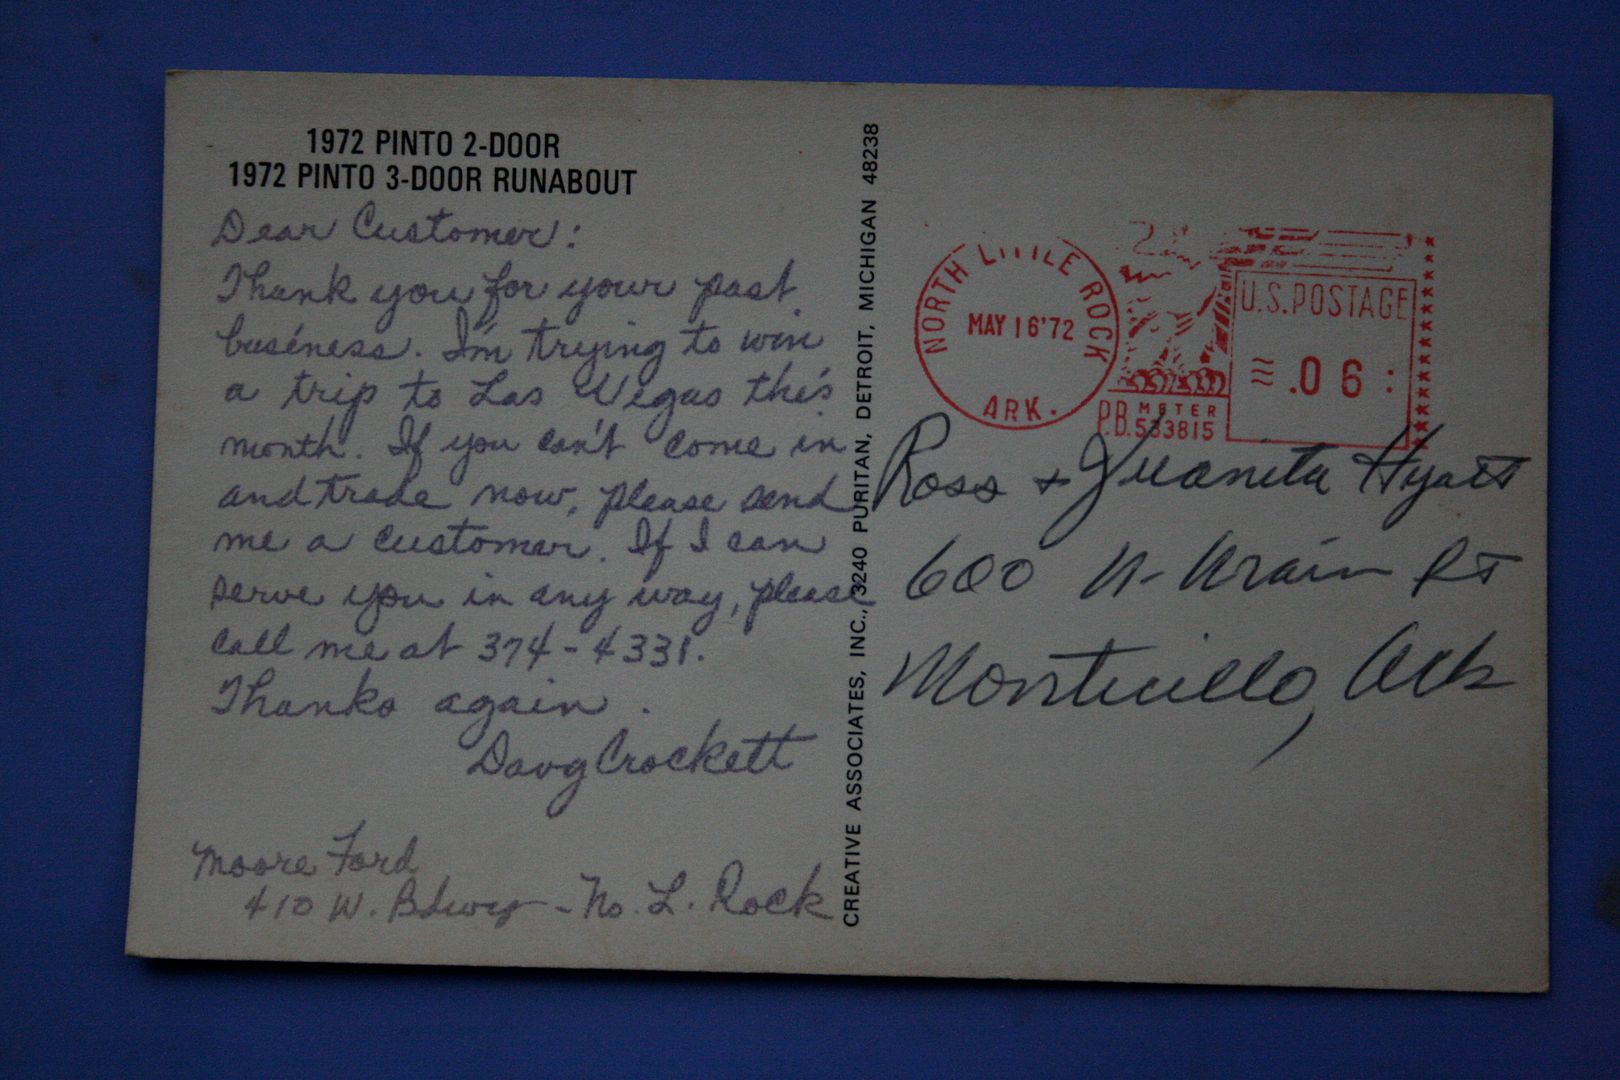 1972 PINTO 2-DOOR
1972 PINTO 3-DOOR RUNABOUT
Dear Customer:
Thank you for your past
business. I'm trying to win
a trip to Las Vegas this
month. If you can't come in
and trade now, please send
me a customer. If I can
serve you in any way, please
call me at 374-4331.
Thanks again.
Doug Crockett
Moore Ford
410 W. Bdwy - No. L. Rock
CREATIVE ASSOCIATES, INC., 3240 PURITAN, DETROIT, MICHIGAN 48238
NORTH LITTLE ROCK
MAY 16'72
ARK.
P.B. METER
533815
U.S. POSTAGE
.06
Ross + Juanita Hyatt
600 N. Main St
Monticello, Ark